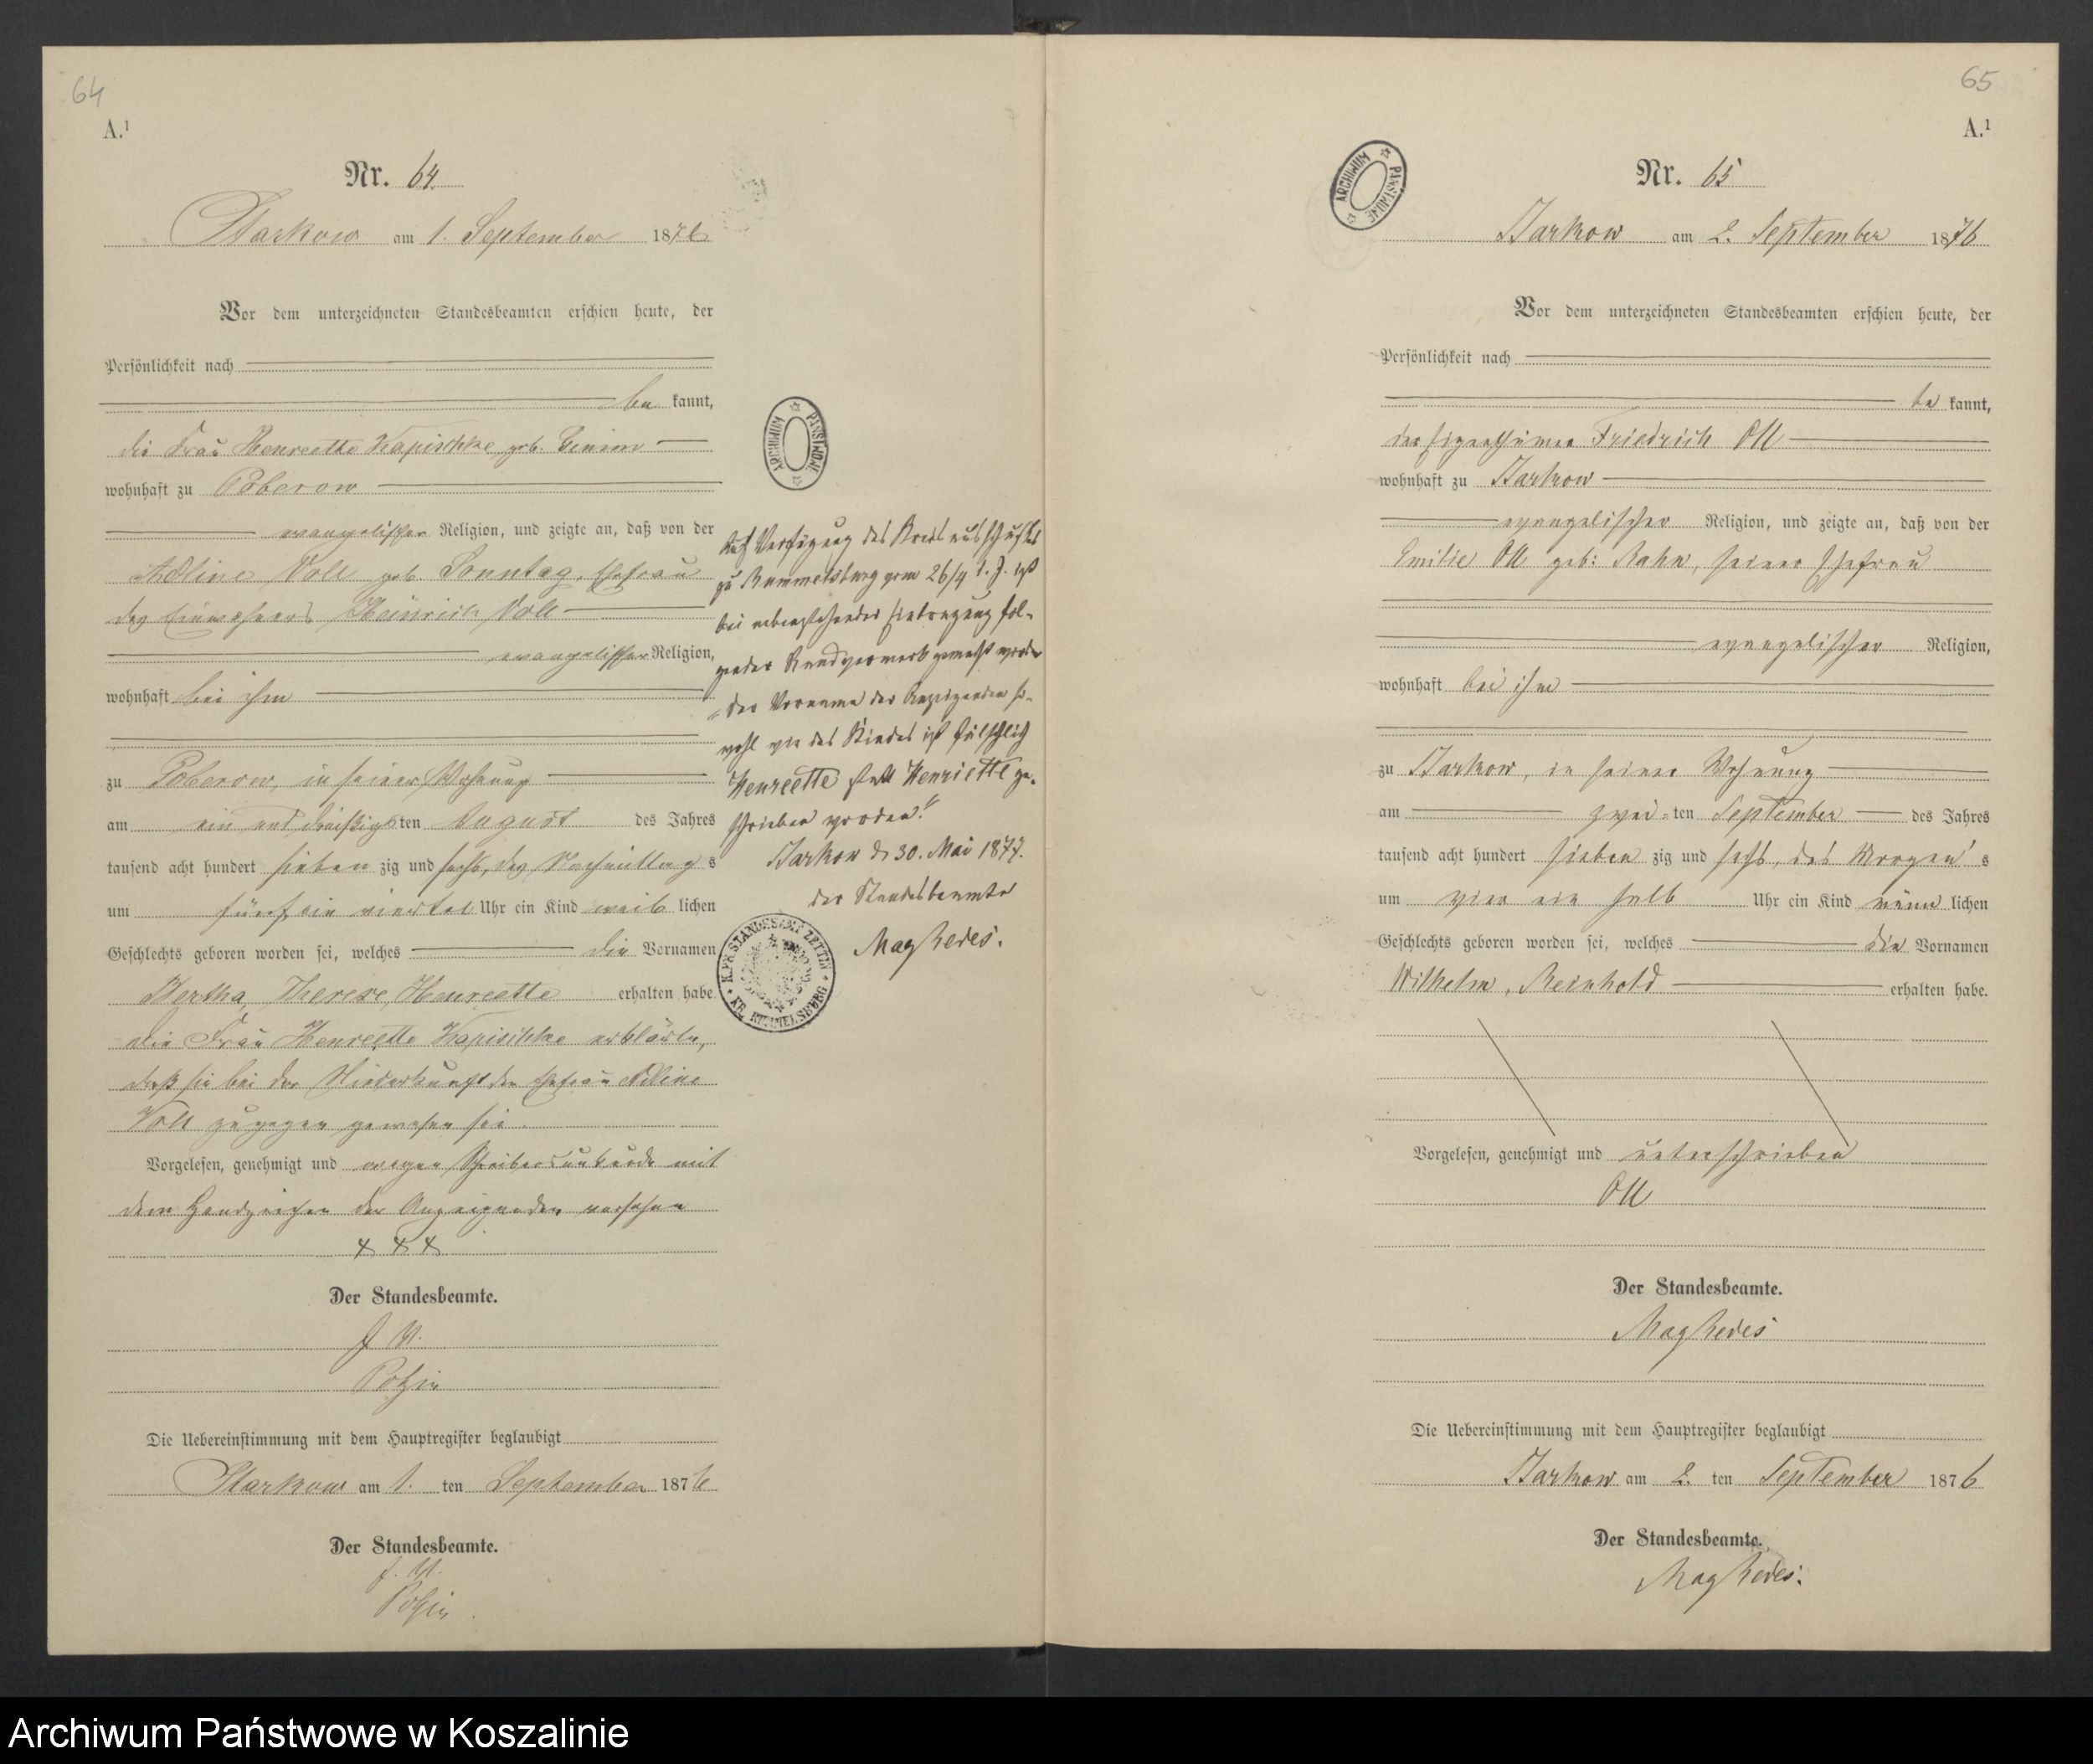 64
A.¹
Nr. 64.
Starkow am 1. September 1876
Vor dem unterzeichneten Standesbeamten erschien heute, der
Persönlichkeit nach
be kannt,
die Frau Henreette Kapischke geb.
wohnhaft zu Poberow
evangelischer Religion, und zeigte an, daß von der
Adline Voll geb. Sonntag, Ehefrau
des Einwohners Heinrich Voll
evangelischer Religion,
wohnhaft bei ihm
zu Poberow, in seiner Wohnung
am ein und dreißigsten August des Jahres
tausend acht hundert sieben zig und sechs, des Nachmittag s
um fünf ein viertel Uhr ein Kind weib lichen
Geschlechts geboren worden sei, welches die Vornamen
Bertha, Therese, Henreette erhalten habe.
Die Frau Henreette Kapischke erklärte,
daß sie bei der Niederkunft der Ehefrau Adline
Voll zugegen gewesen sei.
Vorgelesen, genehmigt und wegen Schreibensunkunde mit
dem Handzeichen der Anzeigenden versehen
× × ×
Der Standesbeamte.
J. V.
Die Uebereinstimmung mit dem Hauptregister beglaubigt
Starkow am 1. ten September 1876
Der Standesbeamte.
J. V.
ARCHIWUM PAŃSTWOWE
Auf Verfügung des Kreisausschusses
zu Rummelsburg vom 26/4 d. J. ist
bei nebenstehender Eintragung fol-
gender Randvermerk gemacht worden
„der Vorname der Anzeigenden so-
wohl wie des Kindes ist fälschlich
Henreette statt Henriette ge-
schrieben worden."
Starkow d. 30. Mai 1877.
der Standesbeamte
Magkedes.
K. PR. STANDESAMT ZETTIN
KR. RUMMELSBURG
65
A.¹
ARCHIWUM PAŃSTWOWE
Nr. 65
Starkow am 2. September 1876
Vor dem unterzeichneten Standesbeamten erschien heute, der
Persönlichkeit nach
be kannt,
der Eigenthümer Friedrich Ott
wohnhaft zu Starkow
evangelischer Religion, und zeigte an, daß von der
Emilie Ott geb: Rahn, seiner Ehefrau
evangelischer Religion,
wohnhaft bei ihm
zu Starkow, in seiner Wohnung
am zwei-ten September des Jahres
tausend acht hundert sieben zig und sechs, des Morgen s
um vier ein halb Uhr ein Kind männ lichen
Geschlechts geboren worden sei, welches die Vornamen
Wilhelm, Reinhold erhalten habe.
Vorgelesen, genehmigt und unterschrieben
Ott
Der Standesbeamte.
Magkedes
Die Uebereinstimmung mit dem Hauptregister beglaubigt
Starkow am 2. ten September 1876
Der Standesbeamte.
Magkedes.
Archiwum Państwowe w Koszalinie